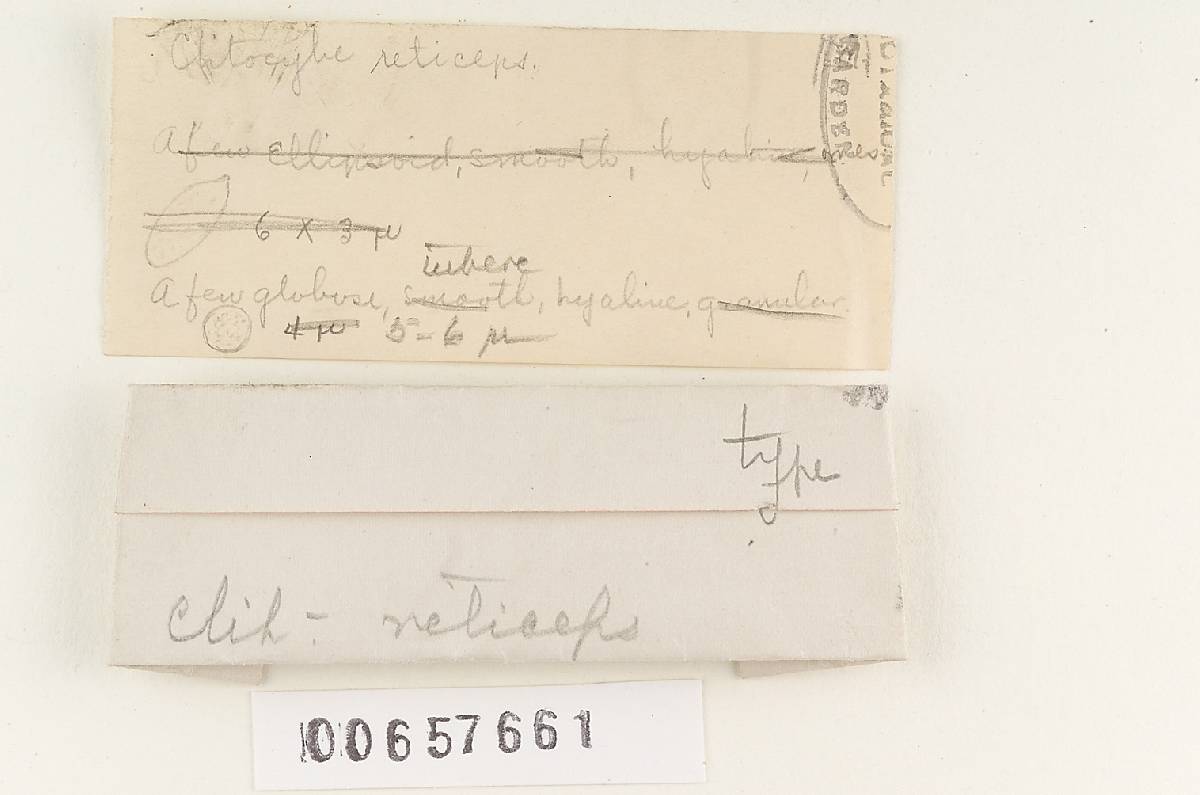 Clitocybe reticeps.
A few ellipsoid, smooth, hyaline,
6 X 3 μ
tuberc
A few globose, smooth, hyaline, granular.
4 μ 5-6 μ
type
Clit- reticeps
00657661